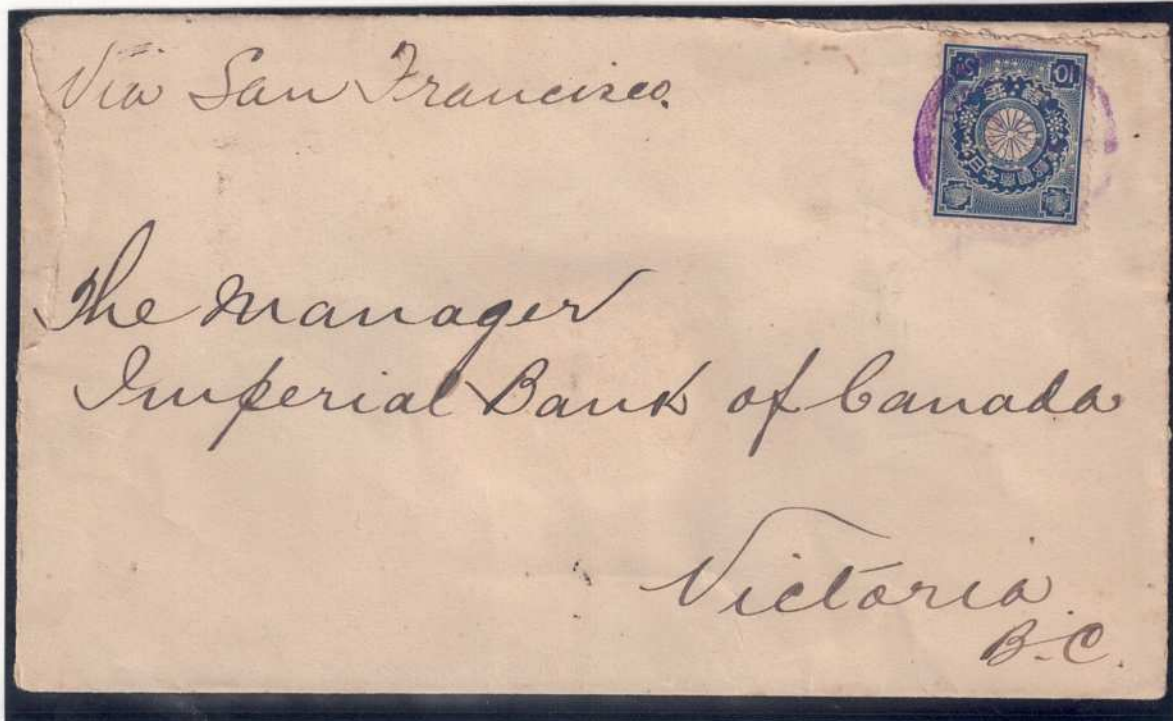 Via San Francisco.
10
SN
The Manager
Imperial Bank of Canada
Victoria
B.C.